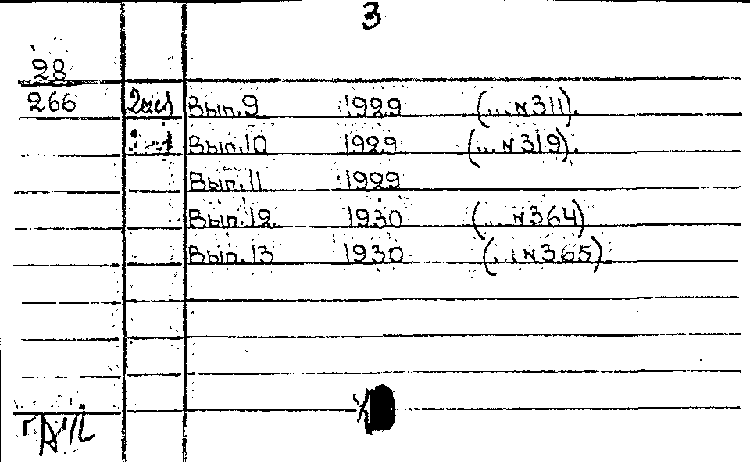 3
28
266 2экз Вып. 9 1929 (... №311).
Вып. 10 1929 (... №319).
Вып. 11 1929
Вып. 12 1930 (... №364)
Вып. 13 1930 (... №365)